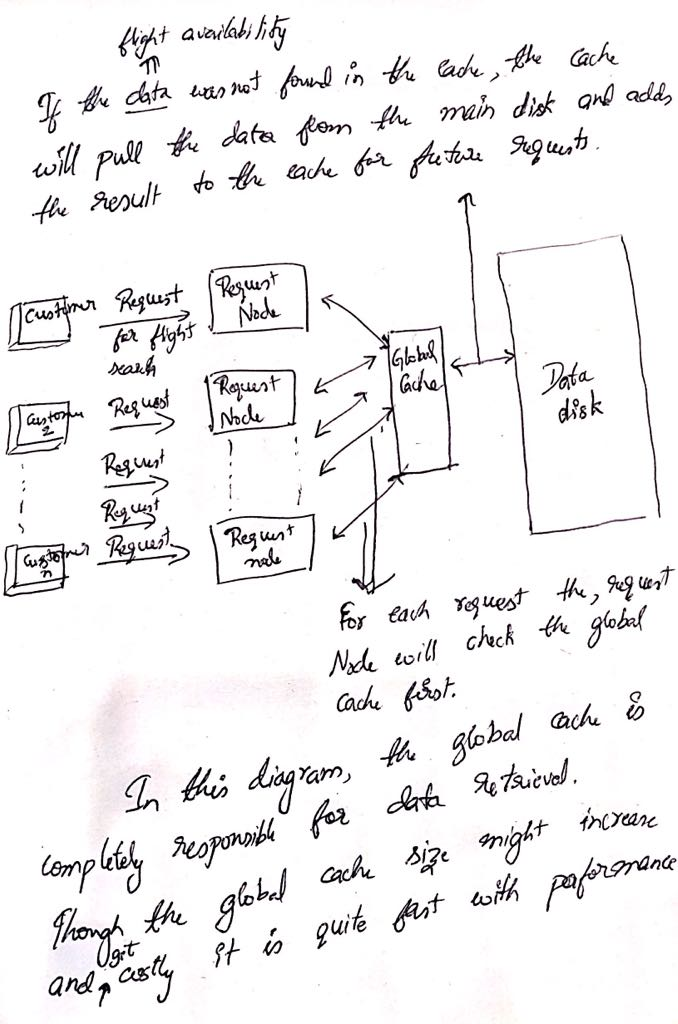 flight availability
If the data was not found in the cache, the cache
will pull the data from the main disk and adds
the result to the cache for future requests.
Customer
Request
for flight
search
Request
Node
Global
Cache
Data
disk
Customer
2
Request
Request
Node
Request
Request
Customer
n
Request
Request
node
For each request the, request
Node will check the global
cache first.
In this diagram, the global cache is
completely responsible for data retrieval.
Though the global cache size might increase
and get costly it is quite fast with performance